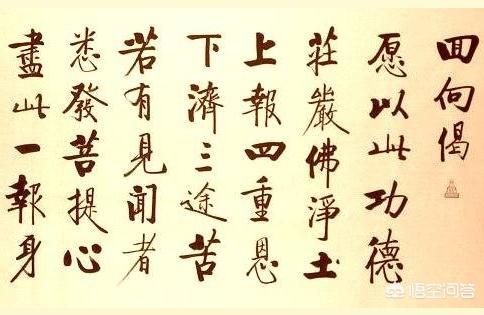 回向偈
愿以此功德
莊嚴佛淨土
上報四重恩
下濟三途苦
若有見聞者
悉發菩提心
盡此一報身
悟空问答